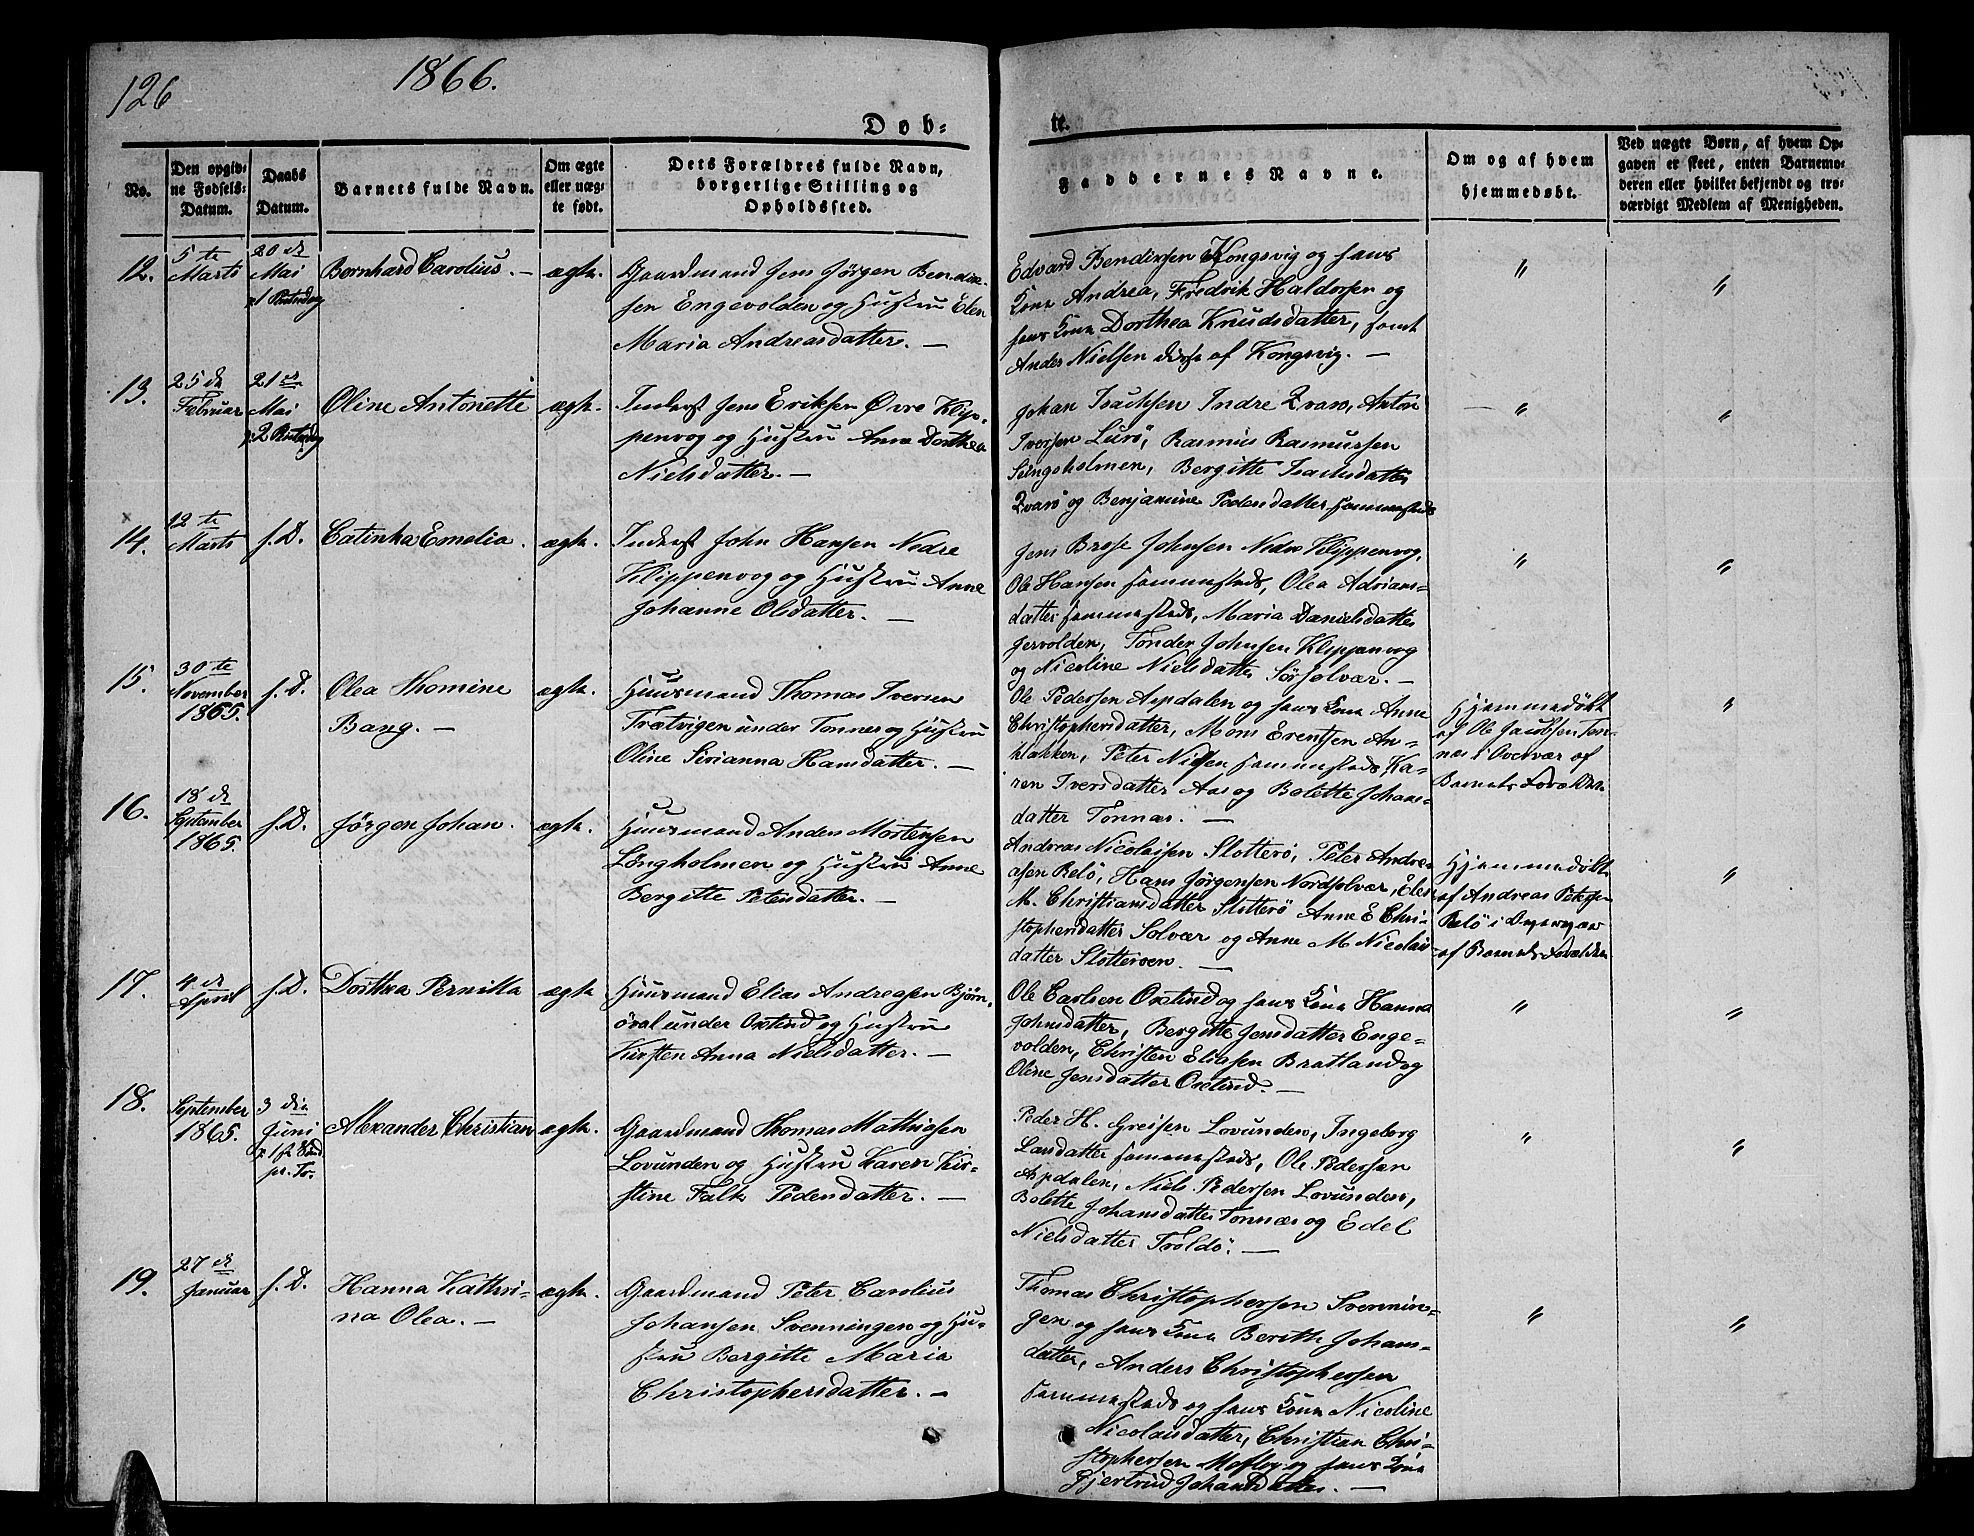 126
1866.
Døb-
te.
No.
Den opgiv-
ne Fødsels-
Datum.
Daabs
Datum.
Barnets fulde Navn.
Om ægte
eller uæg-
te født.
Dets Forældres fulde Navn,
borgerlige Stilling og
Opholdssted.
Faddernes Navne.
Om og af hvem
hjemmedøbt.
Ved uægte Børn, af hvem Op-
gaven er skeet, enten Barnemo-
deren eller hvilket bekjendt og tro-
værdigt Medlem af Menigheden.
12.
5te
Marts
20de
Mai
Bernhard Carolius. —
ægte.
Gaardmand Jens Jørgen Bendix-
sen Engevolden og Hustru Elen
Maria Andreasdatter. —
Edvard Bendixsen Kongsvig og hans
Kone Andrea, Fredrik Haldorsen og
hans Kone Dorthea Knudsdatter, samt
Anders Nielsen disse af Kongsvig. —
"
"
13.
25de
Februar
21de
Mai
Oline Antonette
ægte.
Inderst Jens Eriksen Øvre Klip-
penvog og Hustru Anne Dorthea
Nielsdatter. —
Johan Isachsen Indre Qvarø, Anton
Iversen Lurø, Rasmus Rasmussen
Singsholmen, Bergitte Isachsdatter
Qvarø og Benjamine Pedersdatter sammesteds
"
"
14.
12te
Marts
s. D.
Catinka Emelia.
ægte.
Inderst John Hansen Nedre
Klippenvog og Hustru Anne
Johanne Olsdatter. —
Jens Brose Johnsen Nedre Klippenvog,
Ole Hansen sammesteds, Olea Adrians-
datter sammesteds, Maria Danielsdatter
Jervolden, Tønder Johnsen Klippenvog
og Nicoline Nielsdatter Sørsolvær. —
"
"
15.
30te
November
1865.
s. D.
Olea Thomine
Bang. —
ægte.
Huusmand Thomas Iversen
Trætvigen under Tonnes og Hustru
Oline Sirianna Hansdatter. —
Ole Pedersen Aspdalen og hans Kone Anne
Christophersdatter, Mons Erentsen An-
klakken, Peter Nilsen sammesteds, Ka-
ren Iversdatter Aas og Bolette Johans-
datter Tonnes. —
Hjemmedøbt
af Ole Jacobsen Ton-
nes i Overvær af
Barnets Forældre
"
16.
18de
September
1865.
s. D.
Jørgen Johan.
ægte.
Huusmand Anders Mortensen
Longholmen og Hustru Anne
Bergitte Petersdatter. —
Andreas Nicolaisen Slotterø, Peter Andre-
asen Relø, Hans Jørgensen Nordsolvær, Elen
M. Christiansdatter Slotterø Anne E Chri-
stophersdatter Solvær og Anne M Nicolais-
datter Slotterøen. —
Hjemmedøbt
af Andreas Petersen
Relø i Overvær
af Barnets Forældre
"
17.
4de
April
s. D.
Dorthea Pernilla
ægte
Huusmand Elias Andreasen Bjørn-
øval under Oxtind og Hustru
Kirsten Anna Nielsdatter. —
Ole Carlsen Oxtind og hans Kone Hanna
Johnsdatter, Bergitte Jensdatter Enge-
volden, Christen Eliasen Bratland og
Oline Jensdatter Oxtind. —
"
"
18.
September
1865.
3die
Juni
Alexander Christian
ægte.
Gaardmand Thomas Mathiasen
Lovunden og Hustru Karen Kir-
stine Falk Pedersdatter. —
Peder H. Greisen Lovunden, Ingeborg
Larsdatter sammesteds, Ole Pedersen
Aspdalen, Niels Pedersen Lovunden,
Bolette Johansdatter Tonnes og Edel
Nielsdatter Troldø. —
"
"
19.
27de
Januar
s. D.
Hanna Kathri-
na Olea. —
ægte.
Gaardmand Peter Carolius
Johansen Svenningen og Hu-
stru Bergitte Maria
Christophersdatter. —
Thomas Christophersen Svennin-
gen og hans Kone Berith Johans-
datter, Anders Christophersen
sammesteds og hans Kone Nicoline
Nicolaisdatter, Christian Chri-
stophersen Mosley og hans Kone
Gjertrud Johansdatter. —
"
"